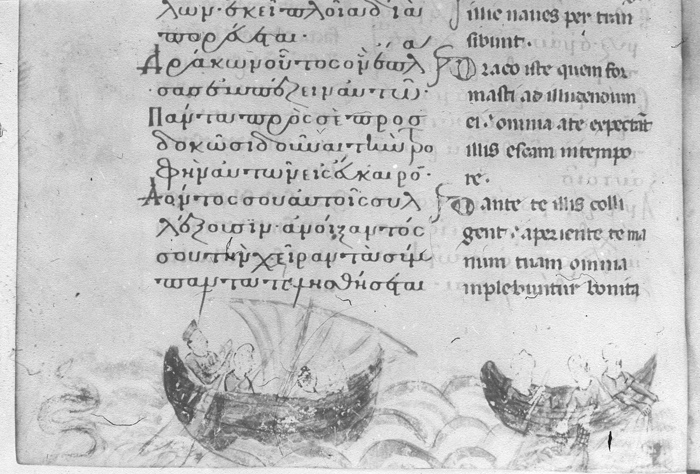 λων· ἐκεῖ πλοῖα δια
πορεύεται·
Δράκων οὗτος ὃν ἔπλα
σας ἐμπέζειν αὐτῶ·
Πάντα πρὸς σὲ προσ
δοκῶσι δοῦναι τὴν τρο
φὴν αὐτῶν εἰς εὔκαιρον·
Δόντος σου αὐτοῖς συλ
λέξουσιν· ἀνοίξαντός
σου τὴν χεῖρα τὰ σύμ
illic naues per tran
sibunt.
Draco iste quem for
masti ad illudendum
ei: omnia a te expectāt
illis escam in tempo
re.
Dante te illis colli
gent: aperiente te ma
num tuam omnia
inplebuntur bonita